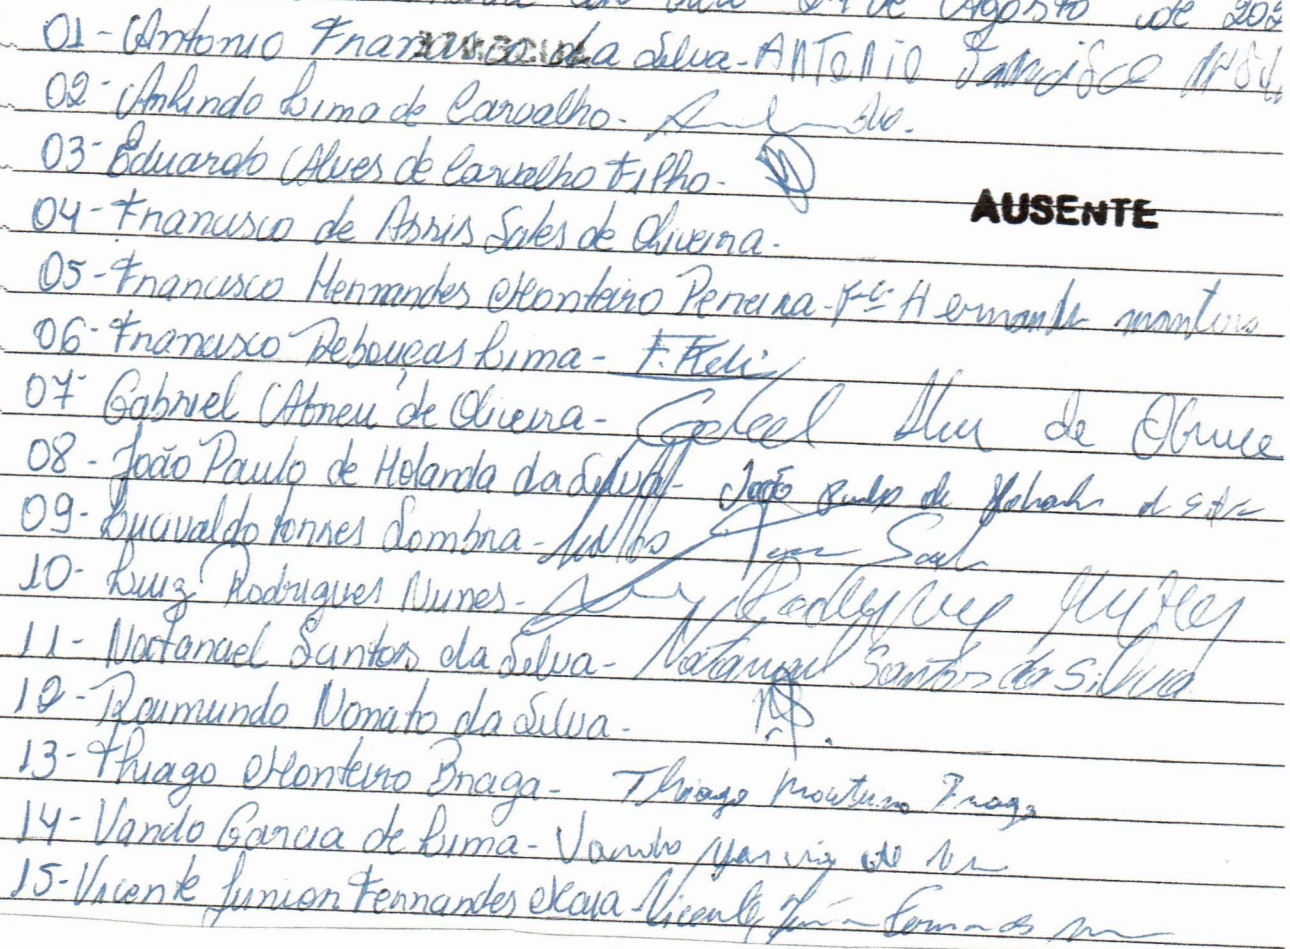 de Agosto de 202
01- Antonio Francisco da Silva- ANTONIO Francisco
02- Arlindo Lima de Carvalho-
03- Eduardo Alves de Carvalho Filho-
AUSENTE
04- Francisco de Assis Sales de Oliveira-
05- Francisco Hermandes Monteiro Pereira- Fco Hermande monteiro
06- Francisco Rebouças Lima- F. Feli
07- Gabriel Abreu de Oliveira- Gabriel Abreu de
08- João Paulo de Holanda da Silva- João Paulo de Holanda da Silva
09- Lucivaldo Torres Sombra-
10- Luiz Rodrigues Nunes- Luiz Rodrigues Nunes
11- Natanael Santos da Silva- Natanael Santos da Silva
12- Raimundo Nonato da Silva-
13- Thiago Monteiro Braga- Thiago Monteiro Braga
14- Vando Garcia de Lima- Vando Garcia de
15- Vicente Junior Fernandes Maia- Vicente Júnior Fernandes